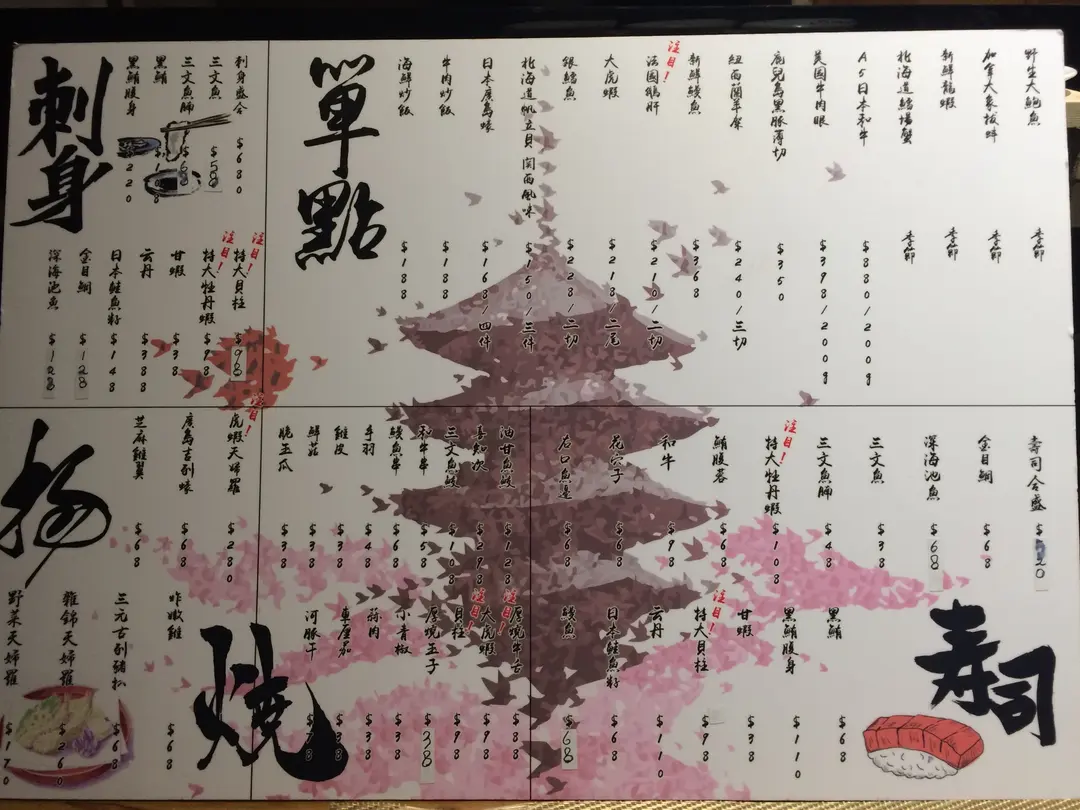 單點
野生大鮑魚 季節
加拿大象拔蚌 季節
新鮮龍蝦 季節
北海道鱈場蟹 季節
A5日本和牛 $880/200g
美國牛肉眼 $398/200g
鹿兒島黑豚薄切 $350
紐西蘭羊架 $240/三切
注目！新鮮鰻魚 $368
法國鵝肝 $210/二切
大虎蝦 $218/二尾
銀鱈魚 $228/二切
北海道帆立貝 関西風味 $150/三件
日本廣島蠔 $168/四件
牛肉炒飯 $188
海鮮炒飯 $188
刺身
刺身盛合 $680
三文魚 $58
三文魚腩 $68
黑鮪
黑鮪腹身 $220
注目！特大貝柱 $98
注目！特大牡丹蝦 $98
甘蝦 $38
云丹 $388
日本鮭魚籽 $148
金目鯛 $128
深海池魚 $128
壽司
壽司合盛
金目鯛 $68
深海池魚 $68
三文魚 $38
三文魚腩 $48
注目！特大牡丹蝦 $108
鮪腹蓉 $68
和牛 $98
花穴子 $68
左口魚邊 $68
黑鮪 $68
黑鮪腹身 $110
甘蝦 $38
注目！特大貝柱 $98
云丹 $110
日本鮭魚籽 $68
鰻魚 $68
燒
油甘魚鮫 $128
喜知次 $298
三文魚鮫 $108
和牛串 $68
鰻魚串 $68
手羽 $48
雞皮 $38
鮮菇 $38
脆玉瓜 $38
注目！厚燒牛舌 $88
注目！大虎蝦 $98
貝柱 $98
厚燒玉子 $38
小青椒 $38
豚肉 $38
多春魚 $38
河豚干 $78
揚
注目！虎蝦天婦羅 $280
廣島吉列蠔 $68
芝麻雞翼 $68
炸嫩雞 $68
三元吉列豬扒 $68
雜錦天婦羅 $260
野菜天婦羅 $170